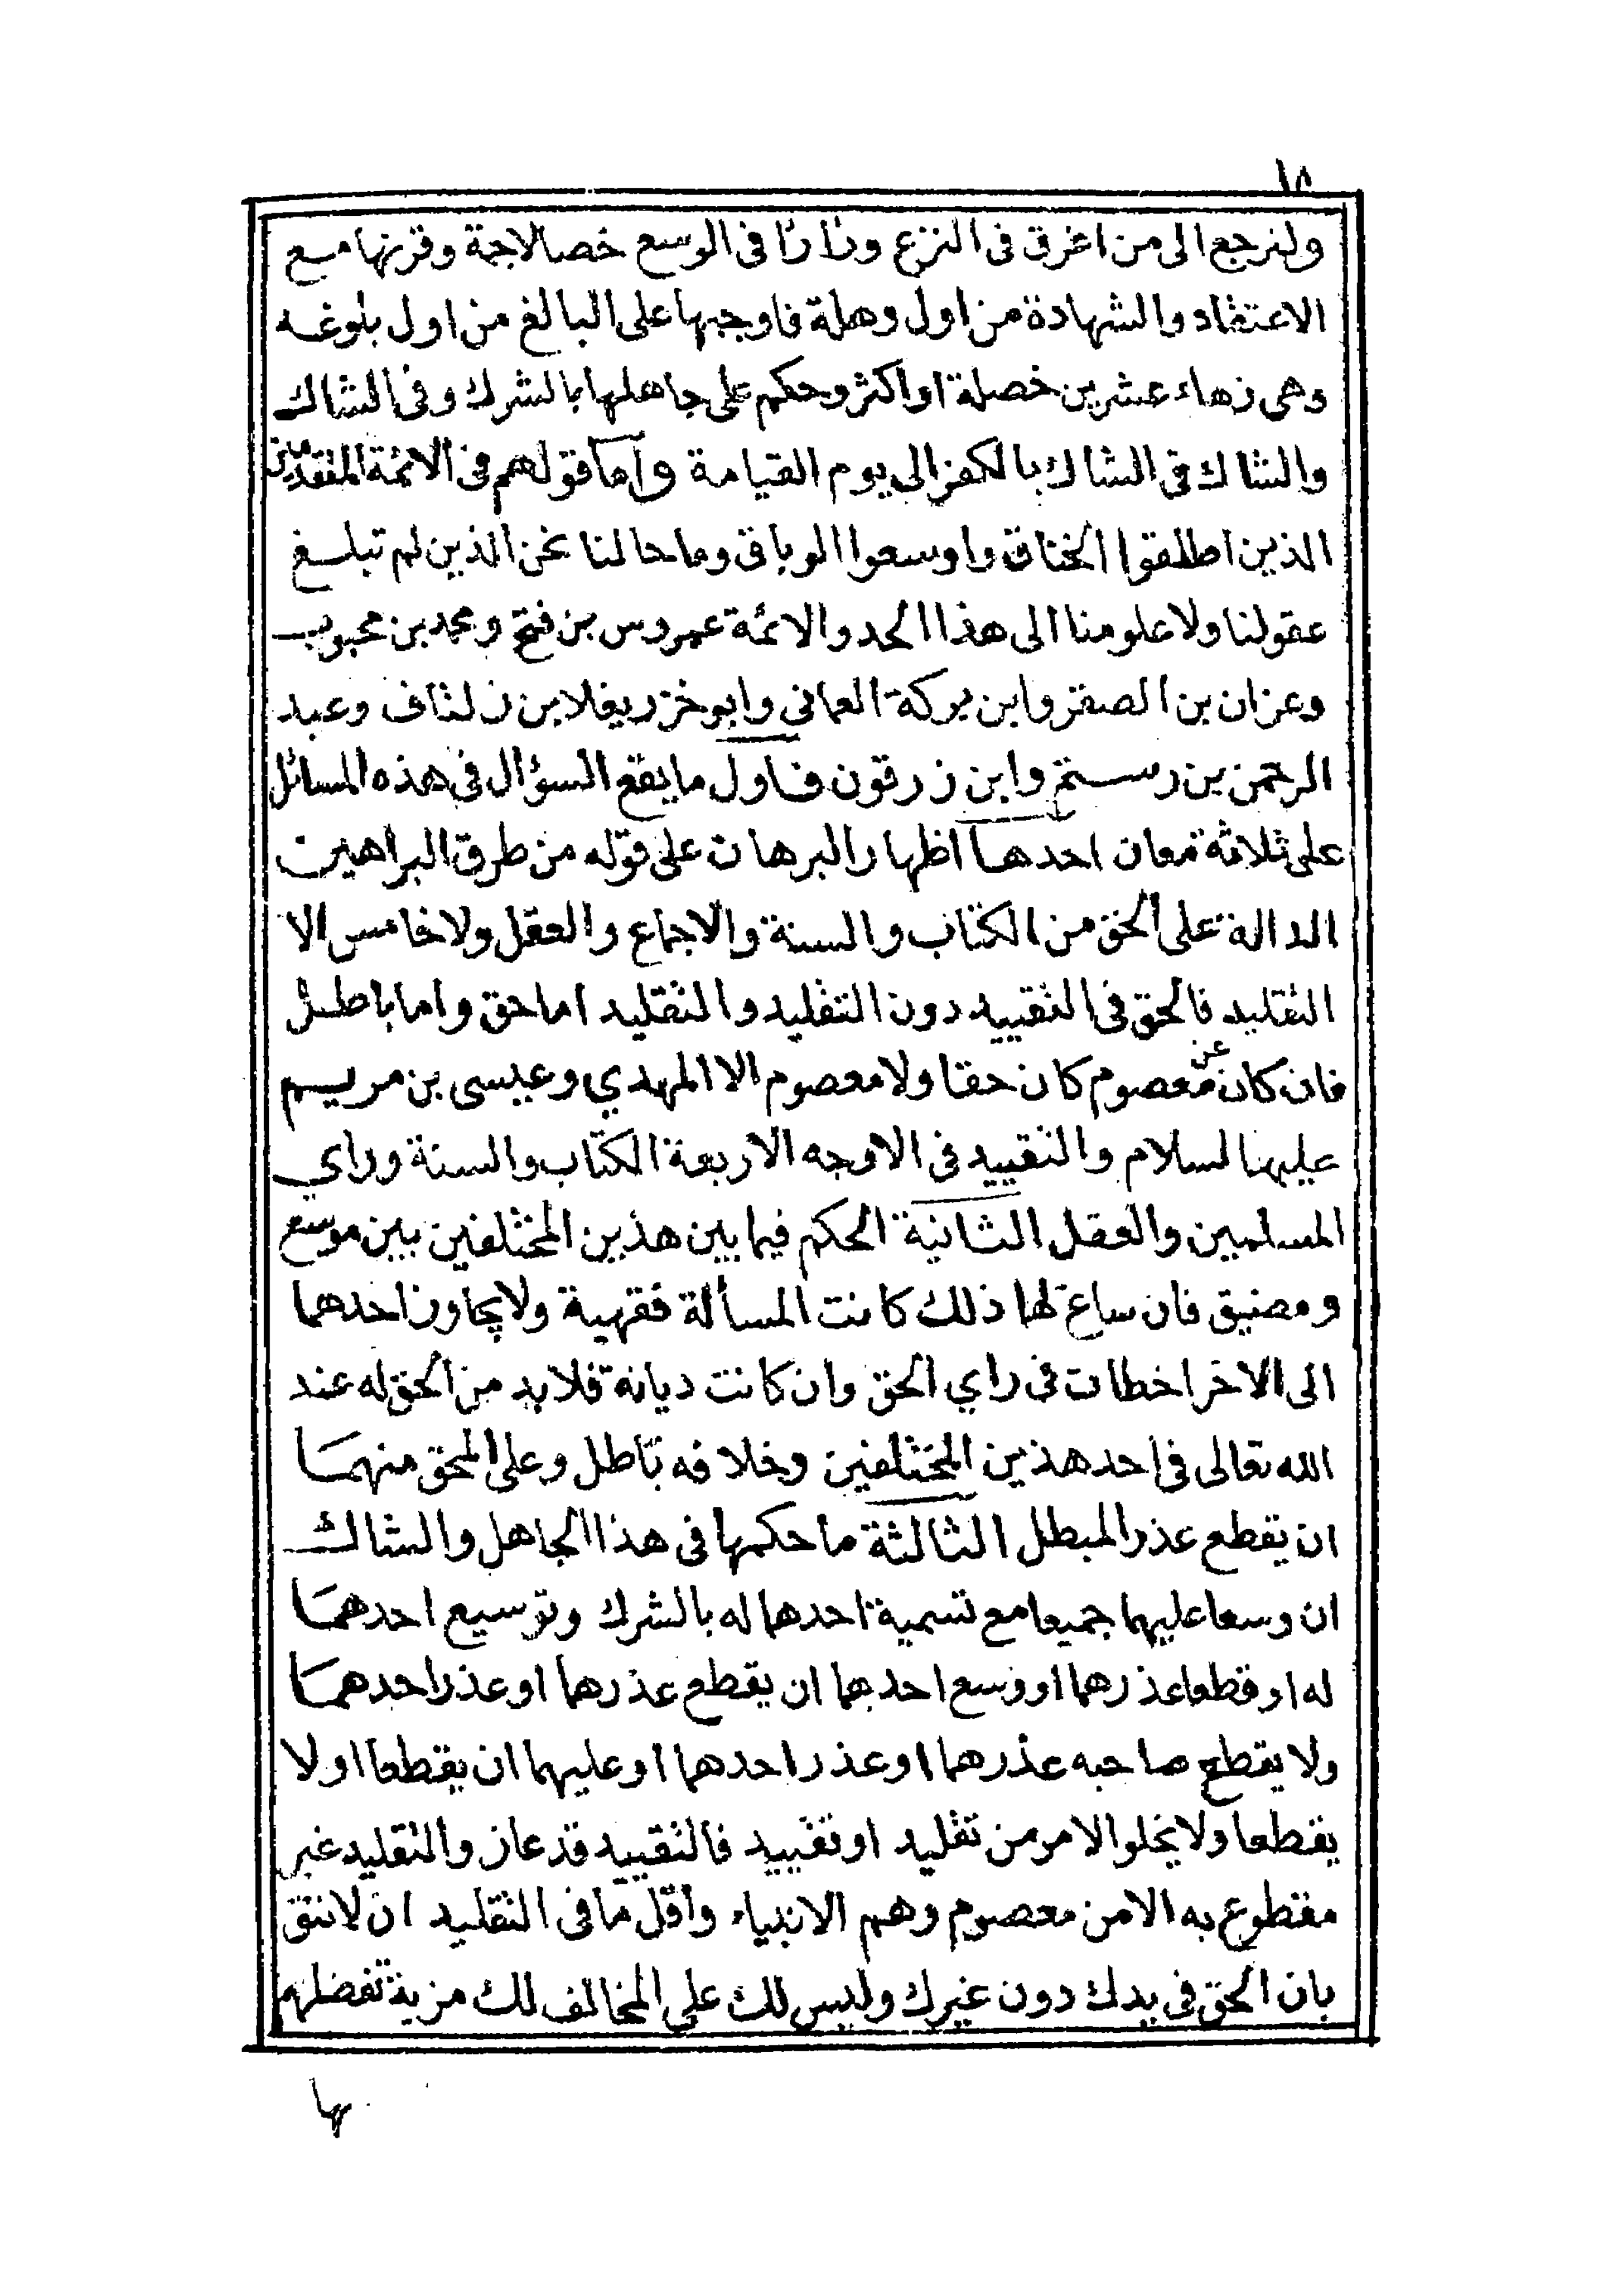 ١٨
ولنرجع الى من اغرق فى النزع وزاد زا فى الوسع خصالاجمة وقرنها مع
الاعتقاد والشهادة من اول وهلة فاوجبها على البالغ من اول بلوغه
وهي زهاء عشرين خصلة او اكثر وحكم على جاهلها بالشرك وفى الشاك
والشاك فى الشاك بالكفر الى يوم القيامة واما قولهم فى الائمة المتقدمين
الذين اطلقوا الخناق واوسعوا الوباق وما حالنا نحن الذين لم تبلغ
عقولنا ولا علومنا الى هذا الحد والائمة عمروس بن فتح ومحمد بن محبوب
وعزان بن الصقر وابن بركة العماني وابو خزر يغلا بن زلتاف وعبد
الرحمن بن رستم وابن زرقون فاول ما يقع السؤال فى هذه المسائل
على ثلاثة معان احدها اظهار البرهان على قوله من طرق البراهين
الدالة على الحق من الكتاب والسنة والاجماع والعقل ولا خامس الا
التقليد فالحق فى التقييد دون التقليد والتقليد اما حق واما باطل
فان كان عن معصوم كان حقا ولا معصوم الا المهدي وعيسى بن مريم
عليهما السلام والتقييد فى الاوجه الاربعة الكتاب والسنة وراي
المسلمين والعقل الثانية الحكم فيما بين هذين المختلفين بين موسع
ومضيق فان ساغ لهما ذلك كانت المسألة فقهية ولا يجاوز احدهما
الى الاخر اخطات فى راي الحق وان كانت ديانة فلا بد من الحق له عند
الله تعالى فى احد هذين المختلفين وخلافه باطل وعلى المحق منهما
ان يقطع عذر المبطل الثالثة ما حكمها فى هذا الجاهل والشاك
ان وسعا عليهما جميعا مع تسمية احدهما له بالشرك وتوسيع احدهما
له او قطعا عذرهما او وسع احدهما ان يقطع عذرهما او عذر احدهما
ولا يقطع صاحبه عذرهما او عذر احدهما او عليهما ان يقطعا اولا
يقطعا ولا يخلوا الامر من تقليد او تقييد فالتقييد قد عاز والتقليد غير
مقطوع به الا من معصوم وهم الانبياء واقل ما فى التقليد ان لا نثق
بان الحق فى يدك دون غيرك وليس لك على المخالف لك مزية تفضلهم
بها